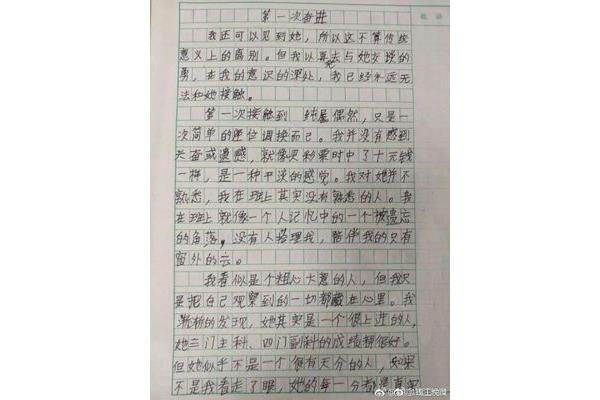 第一次奋进
我还可以见到她,所以这不算传统
意义上的离别。但我以再去与她交谈的
勇,在我的意识的深处,我已经永远无
法和她接触。
第一次接触到 纯属偶然,只是一
次简单的座位调换而已。我并没有感到
兴奋或遗憾,就像买彩票时中了十元钱
一样,是一种平淡的感觉。我对她并不
熟悉,我在班上其实没有熟悉的人。我
在班上就像一个人记忆中的一个被遗忘
的角落,没有人搭理我,陪伴我的只有
窗外的云。
我看似是个粗心大意的人,但我只
是把自己观察到的一切都藏在心里。我
渐渐的发现,她其实是一个很上进的人,
她三门主科、四门副科的成绩都很好。
但她似乎不是一个很有天分的人,如果
不是我看走了眼,她的每一分都是真实
@钱江晚报